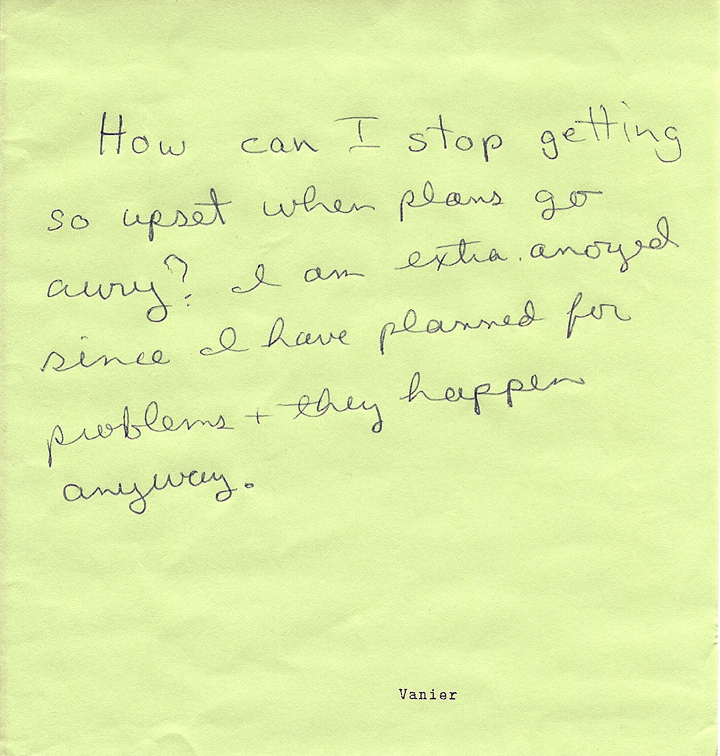 How can I stop getting
so upset when plans go
awry? I am extra anoyed
since I have planned for
problems + they happen
anyway.
Vanier